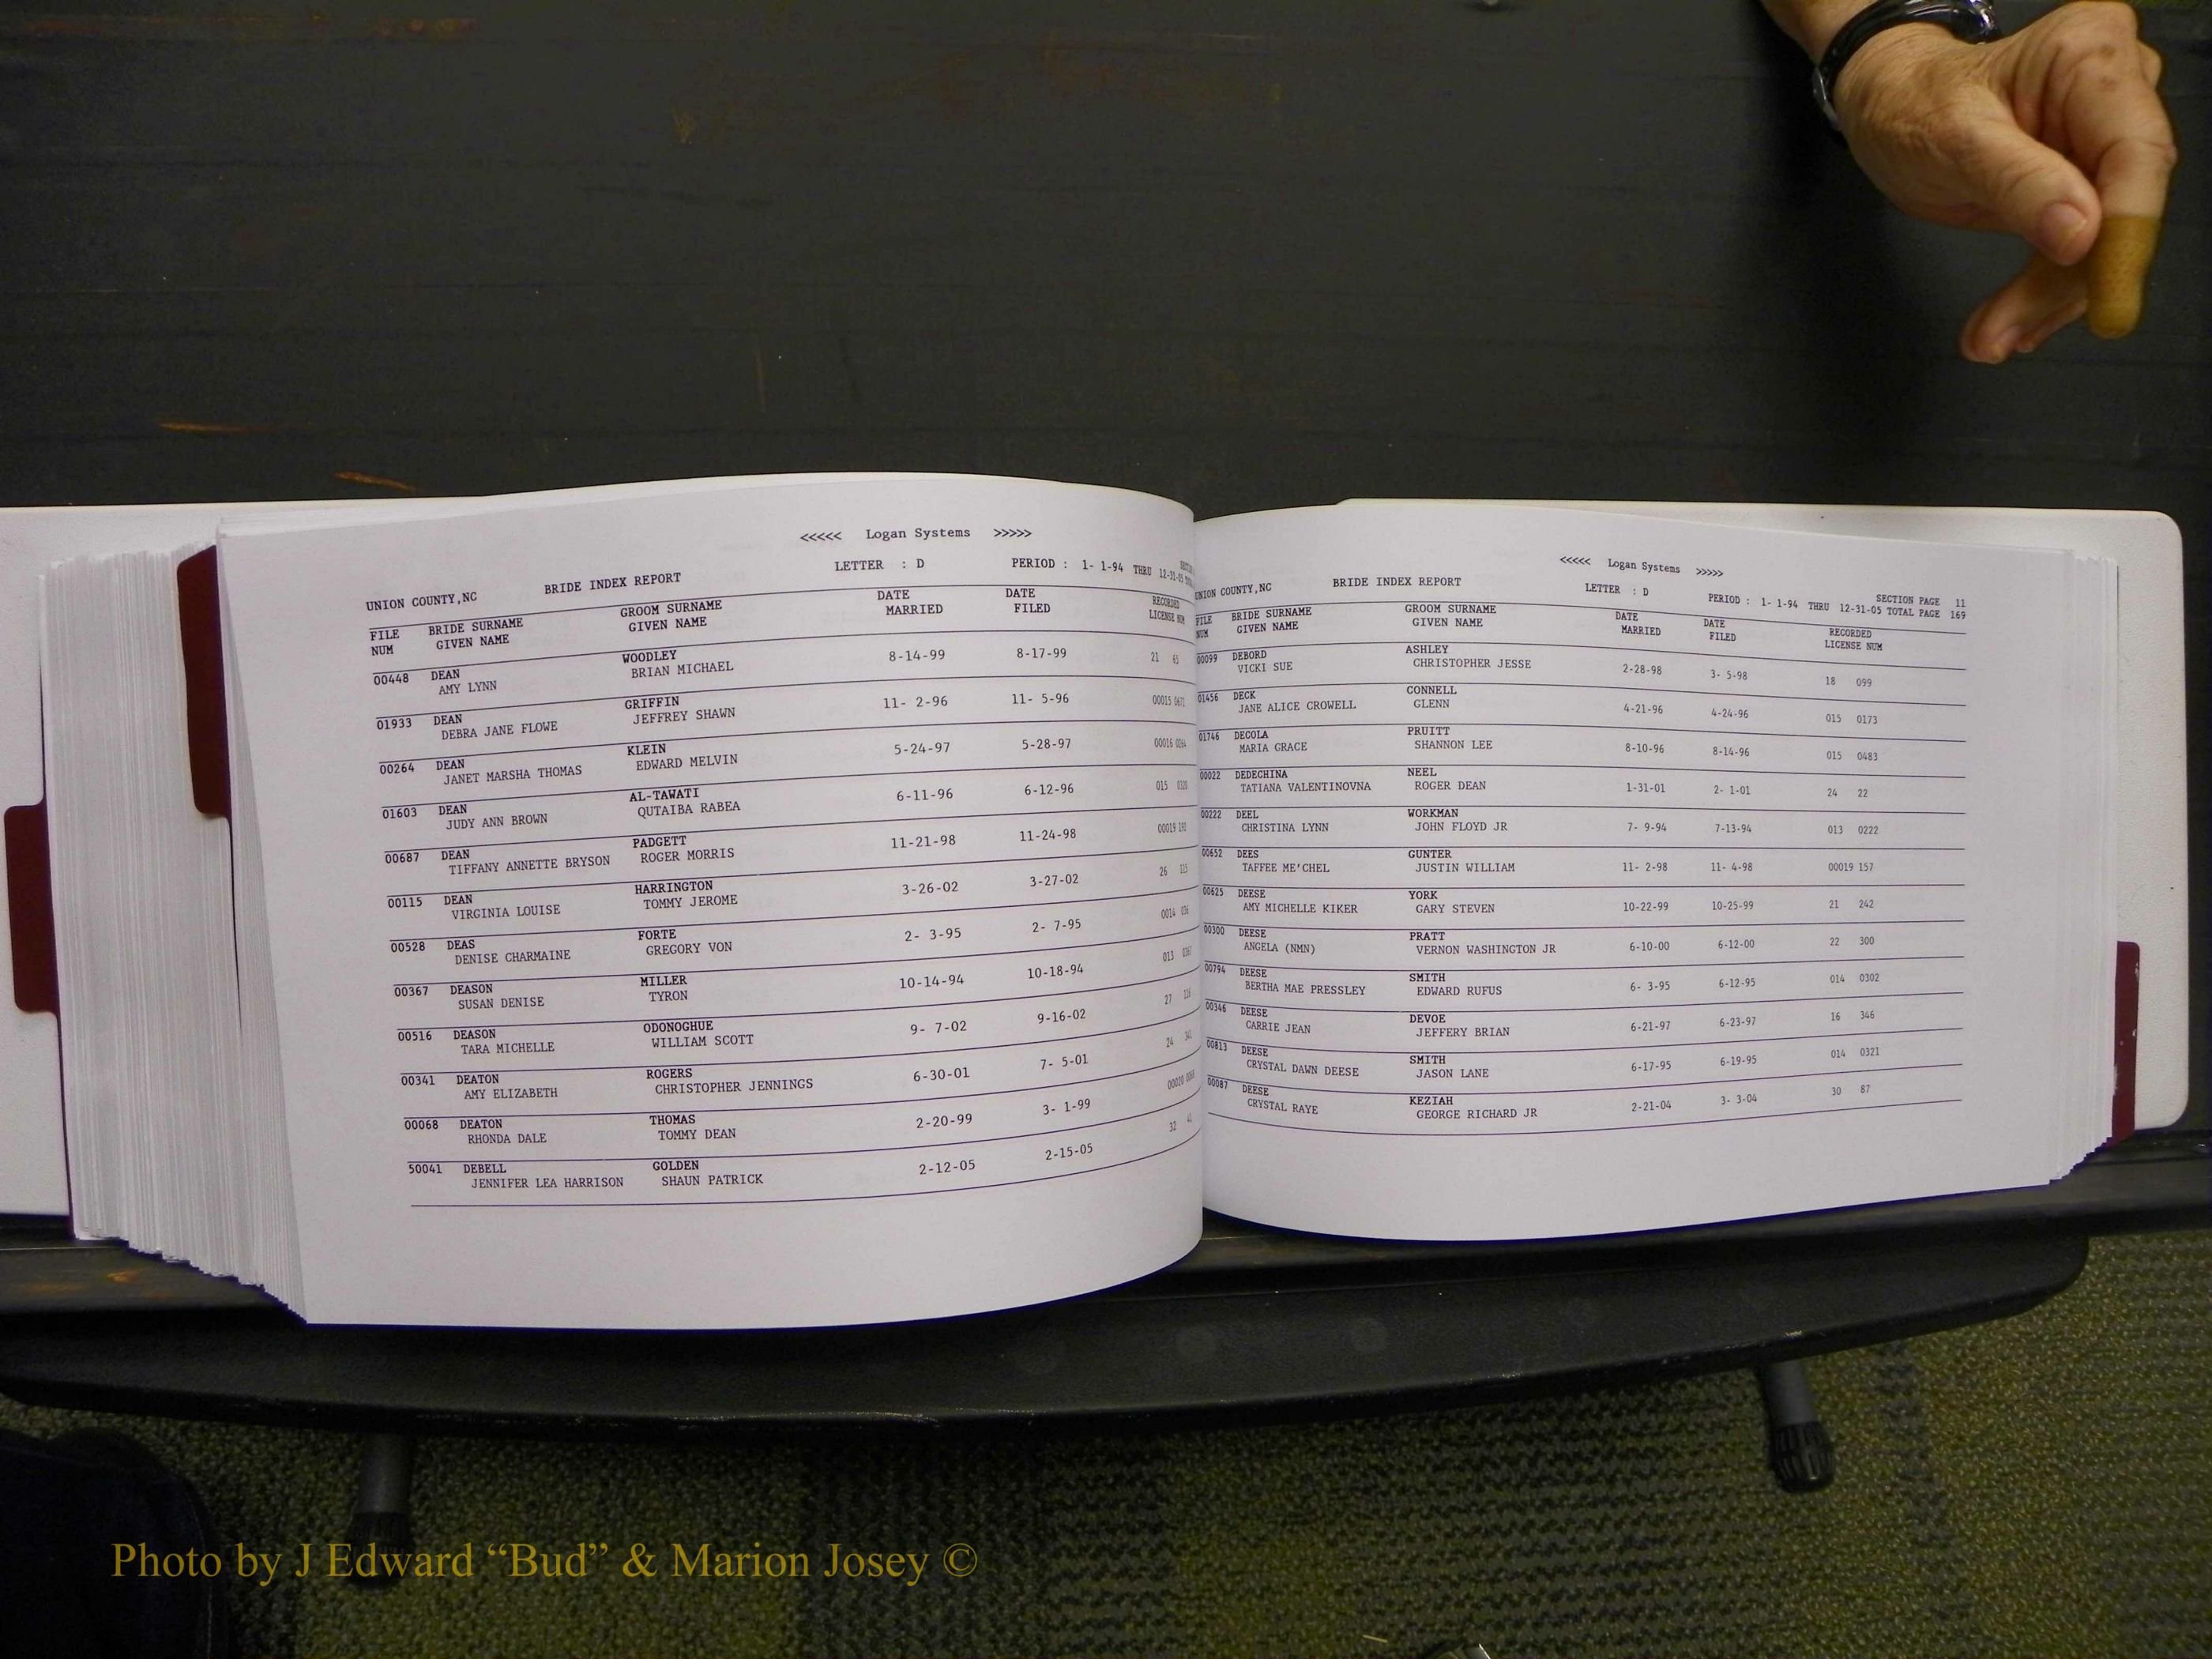 <<<<< Logan Systems >>>>>
UNION COUNTY,NC BRIDE INDEX REPORT LETTER : D PERIOD : 1- 1-94 THRU 12-31-05
FILE BRIDE SURNAME GROOM SURNAME DATE DATE RECORDED
NUM GIVEN NAME GIVEN NAME MARRIED FILED LICENSE NUM
00448 DEAN WOODLEY 8-14-99 8-17-99 21 65
AMY LYNN BRIAN MICHAEL
01933 DEAN GRIFFIN 11- 2-96 11- 5-96 00015
DEBRA JANE FLOWE JEFFREY SHAWN
00264 DEAN KLEIN 5-24-97 5-28-97 00016
JANET MARSHA THOMAS EDWARD MELVIN
01603 DEAN AL-TAWATI 6-11-96 6-12-96 015
JUDY ANN BROWN QUTAIBA RABEA
00687 DEAN PADGETT 11-21-98 11-24-98 00019
TIFFANY ANNETTE BRYSON ROGER MORRIS
00115 DEAN HARRINGTON 3-26-02 3-27-02 26
VIRGINIA LOUISE TOMMY JEROME
00528 DEAS FORTE 2- 3-95 2- 7-95 0014
DENISE CHARMAINE GREGORY VON
00367 DEASON MILLER 10-14-94 10-18-94 013
SUSAN DENISE TYRON
00516 DEASON ODONOGHUE 9- 7-02 9-16-02 27
TARA MICHELLE WILLIAM SCOTT
00341 DEATON ROGERS 6-30-01 7- 5-01 24
AMY ELIZABETH CHRISTOPHER JENNINGS
00068 DEATON THOMAS 2-20-99 3- 1-99 00020
RHONDA DALE TOMMY DEAN
50041 DEBELL GOLDEN 2-12-05 2-15-05 32
JENNIFER LEA HARRISON SHAUN PATRICK
<<<<< Logan Systems >>>>>
UNION COUNTY,NC BRIDE INDEX REPORT LETTER : D SECTION PAGE 11
PERIOD : 1- 1-94 THRU 12-31-05 TOTAL PAGE 169
FILE BRIDE SURNAME GROOM SURNAME DATE DATE RECORDED
NUM GIVEN NAME GIVEN NAME MARRIED FILED LICENSE NUM
00099 DEBORD ASHLEY 2-28-98 3- 5-98 18 099
VICKI SUE CHRISTOPHER JESSE
01456 DECK CONNELL 4-21-96 4-24-96 015 0173
JANE ALICE CROWELL GLENN
01746 DECOLA PRUITT 8-10-96 8-14-96 015 0483
MARIA GRACE SHANNON LEE
00022 DEDECHINA NEEL 1-31-01 2- 1-01 24 22
TATIANA VALENTINOVNA ROGER DEAN
00222 DEEL WORKMAN 7- 9-94 7-13-94 013 0222
CHRISTINA LYNN JOHN FLOYD JR
00652 DEES GUNTER 11- 2-98 11- 4-98 00019 157
TAFFEE ME'CHEL JUSTIN WILLIAM
00625 DEESE YORK 10-22-99 10-25-99 21 242
AMY MICHELLE KIKER GARY STEVEN
00300 DEESE PRATT 6-10-00 6-12-00 22 300
ANGELA (NMN) VERNON WASHINGTON JR
00794 DEESE SMITH 6- 3-95 6-12-95 014 0302
BERTHA MAE PRESSLEY EDWARD RUFUS
00346 DEESE DEVOE 6-21-97 6-23-97 16 346
CARRIE JEAN JEFFERY BRIAN
00813 DEESE SMITH 6-17-95 6-19-95 014 0321
CRYSTAL DAWN DEESE JASON LANE
00087 DEESE KEZIAH 2-21-04 3- 3-04 30 87
CRYSTAL RAYE GEORGE RICHARD JR
Photo by J Edward “Bud” & Marion Josey ©